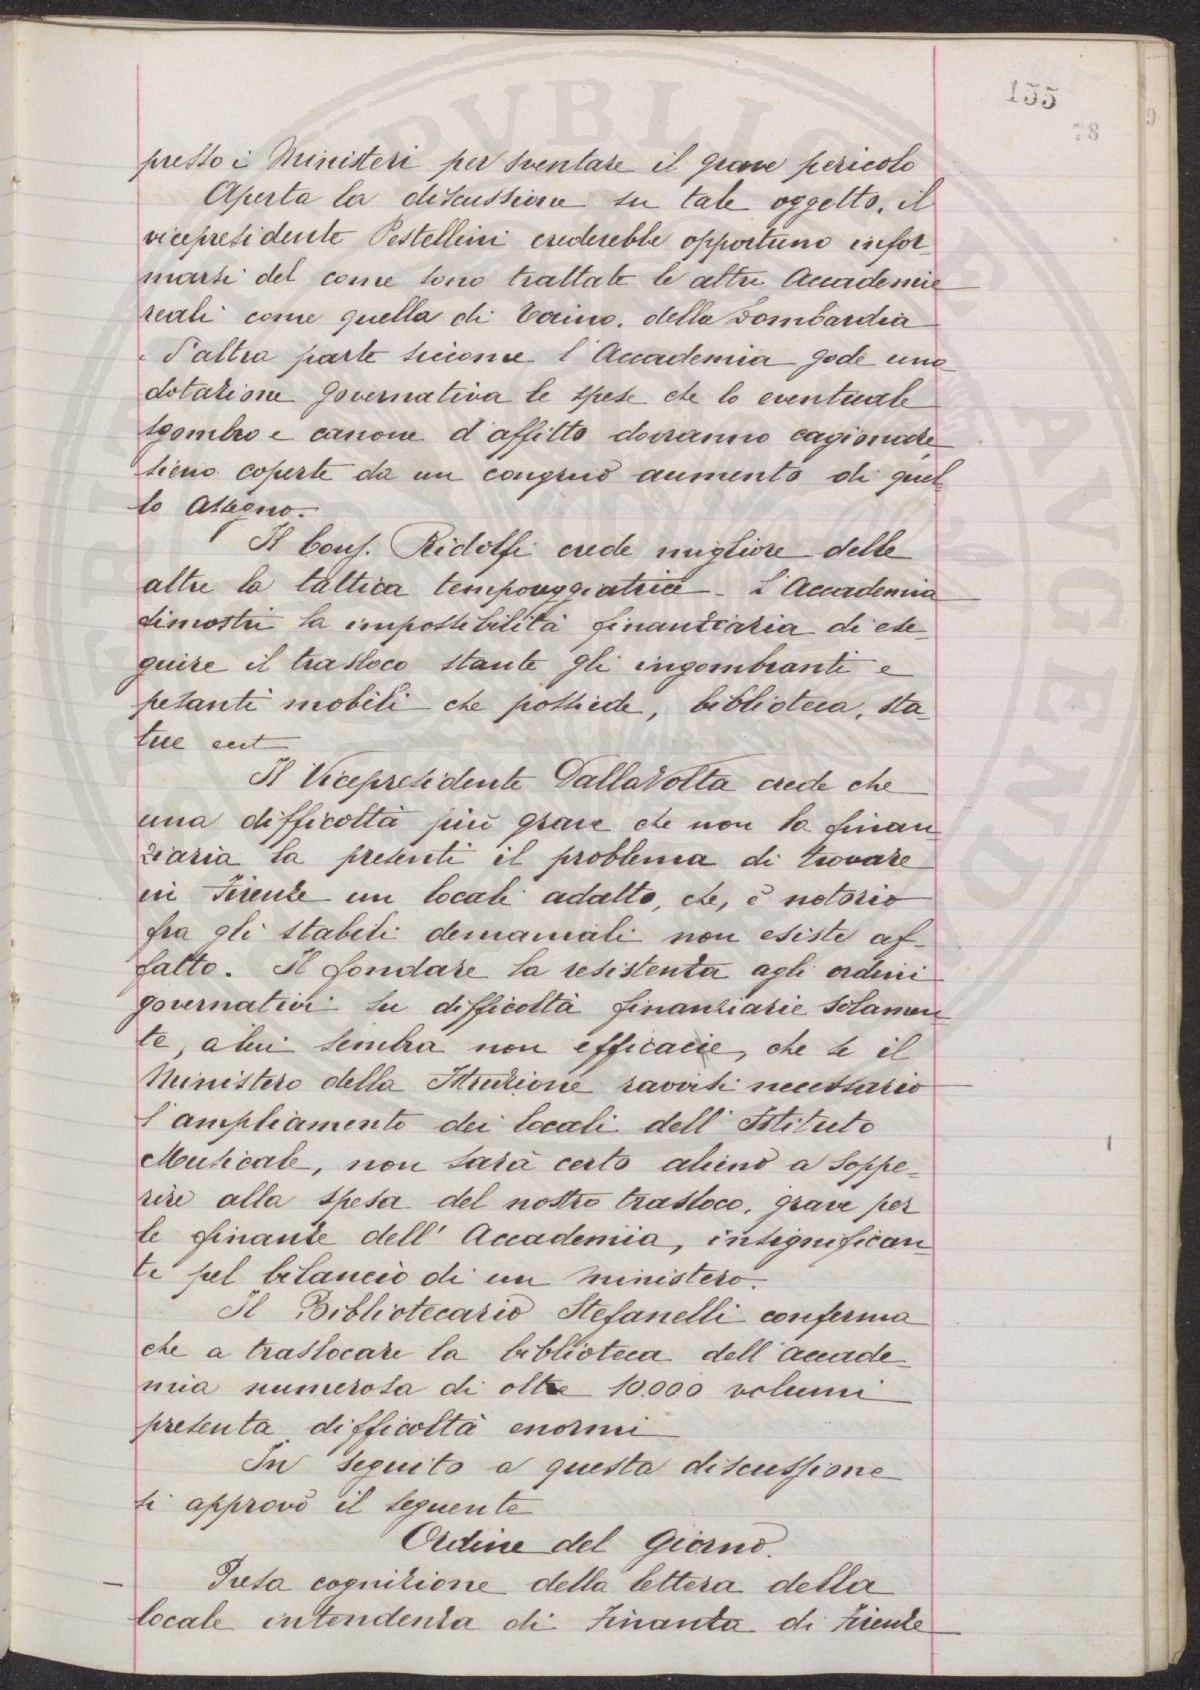 155
78
presso i Ministeri per sventare il grave pericolo
Aperta la discussione su tale oggetto, il
vicepresidente Pestellini crederebbe opportuno infor-
marsi del come sono trattate le altre Accademie
reali come quella di Torino, della Lombardia
D'altra parte siccome l'Accademia gode una
dotazione governativa le spese che lo eventuale
sgombro e canone d'affitto dovranno cagionare
sieno coperte da un congruo aumento di quel-
lo assegno.
Il Cons. Ridolfi crede migliore delle
altre la tattica temporeggiatrice - L'Accademia
dimostri la impossibilità finanziaria di ese-
guire il trasloco stante gli ingombranti e
pesanti mobili che possiede, biblioteca, sta
tue ecct
Il Vicepresidente DallaVolta crede che
una difficoltà più grave che non la finan
ziaria la presenti il problema di trovare
in Firenze un locale adatto, che, è notorio
fra gli stabili demaniali non esiste af-
fatto. Il fondare la resistenza agli ordini
governativi su difficoltà finanziarie solamen
te, a lui sembra non efficacie, che se il
Ministero della Istruzione ravvisi necessario
l'ampliamento dei locali dell'Istituto
Musicale, non sarà certo alieno a soppe-
rire alla spesa del nostro trasloco, grave per
le finanze dell'Accademia, insignifican
te pel bilancio di un Ministero.
Il Bibliotecario Stefanelli conferma
che a traslocare la biblioteca dell'accade-
mia numerosa di oltre 10.000 volumi
presenta difficoltà enormi
In seguito a questa discussione
si approvò il seguente
Ordine del Giorno.
Presa cognizione della lettera della
locale intendenza di Finanza di Firenze